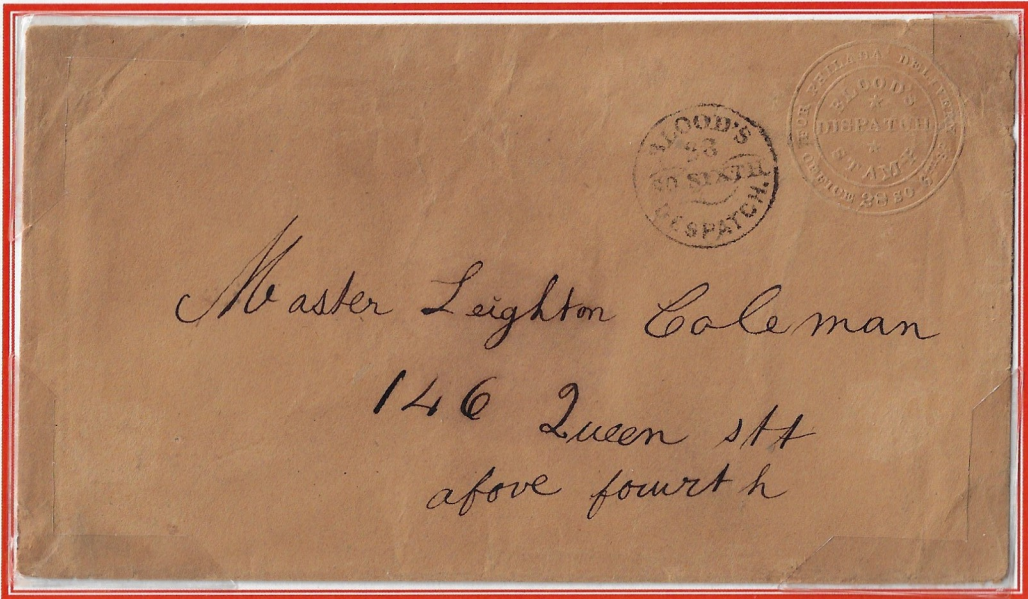 FOR PHILADA DELIVERY
BLOOD'S
DISPATCH
STAMP
OFFICE 28 SO 6
BLOOD'S
28
SO SIXTH
DESPATCH.
Master Leighton Coleman
146 Queen stt
above fourth